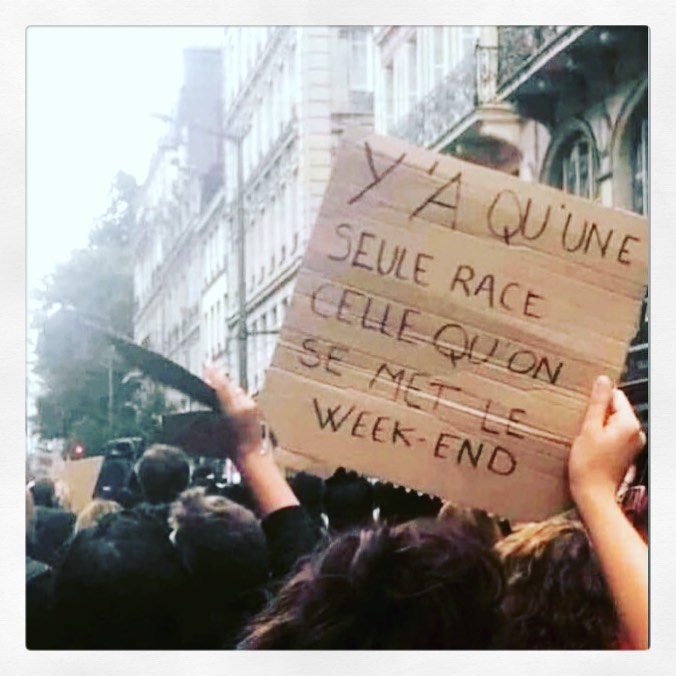 Y'A QU'UNE
SEULE RACE
CELLE QU'ON
SE MET LE
WEEK-END